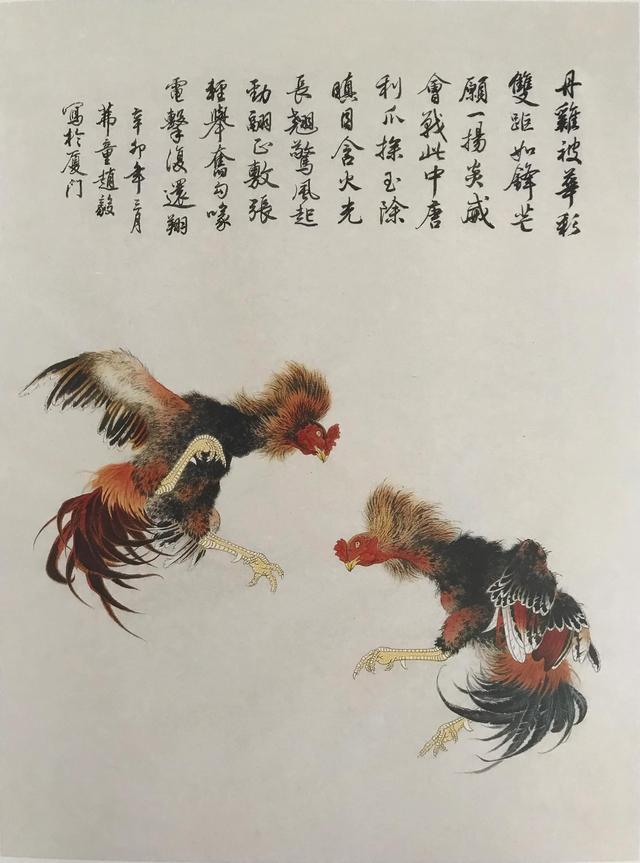 丹雞被華彩
雙距如鋒芒
願一揚炎威
會戰此中唐
利爪探玉除
瞋目含火光
長翹驚風起
勁翮正敷張
輕舉奮勾喙
電擊復還翔
辛卯年三月
茀童趙毅
寫於厦门